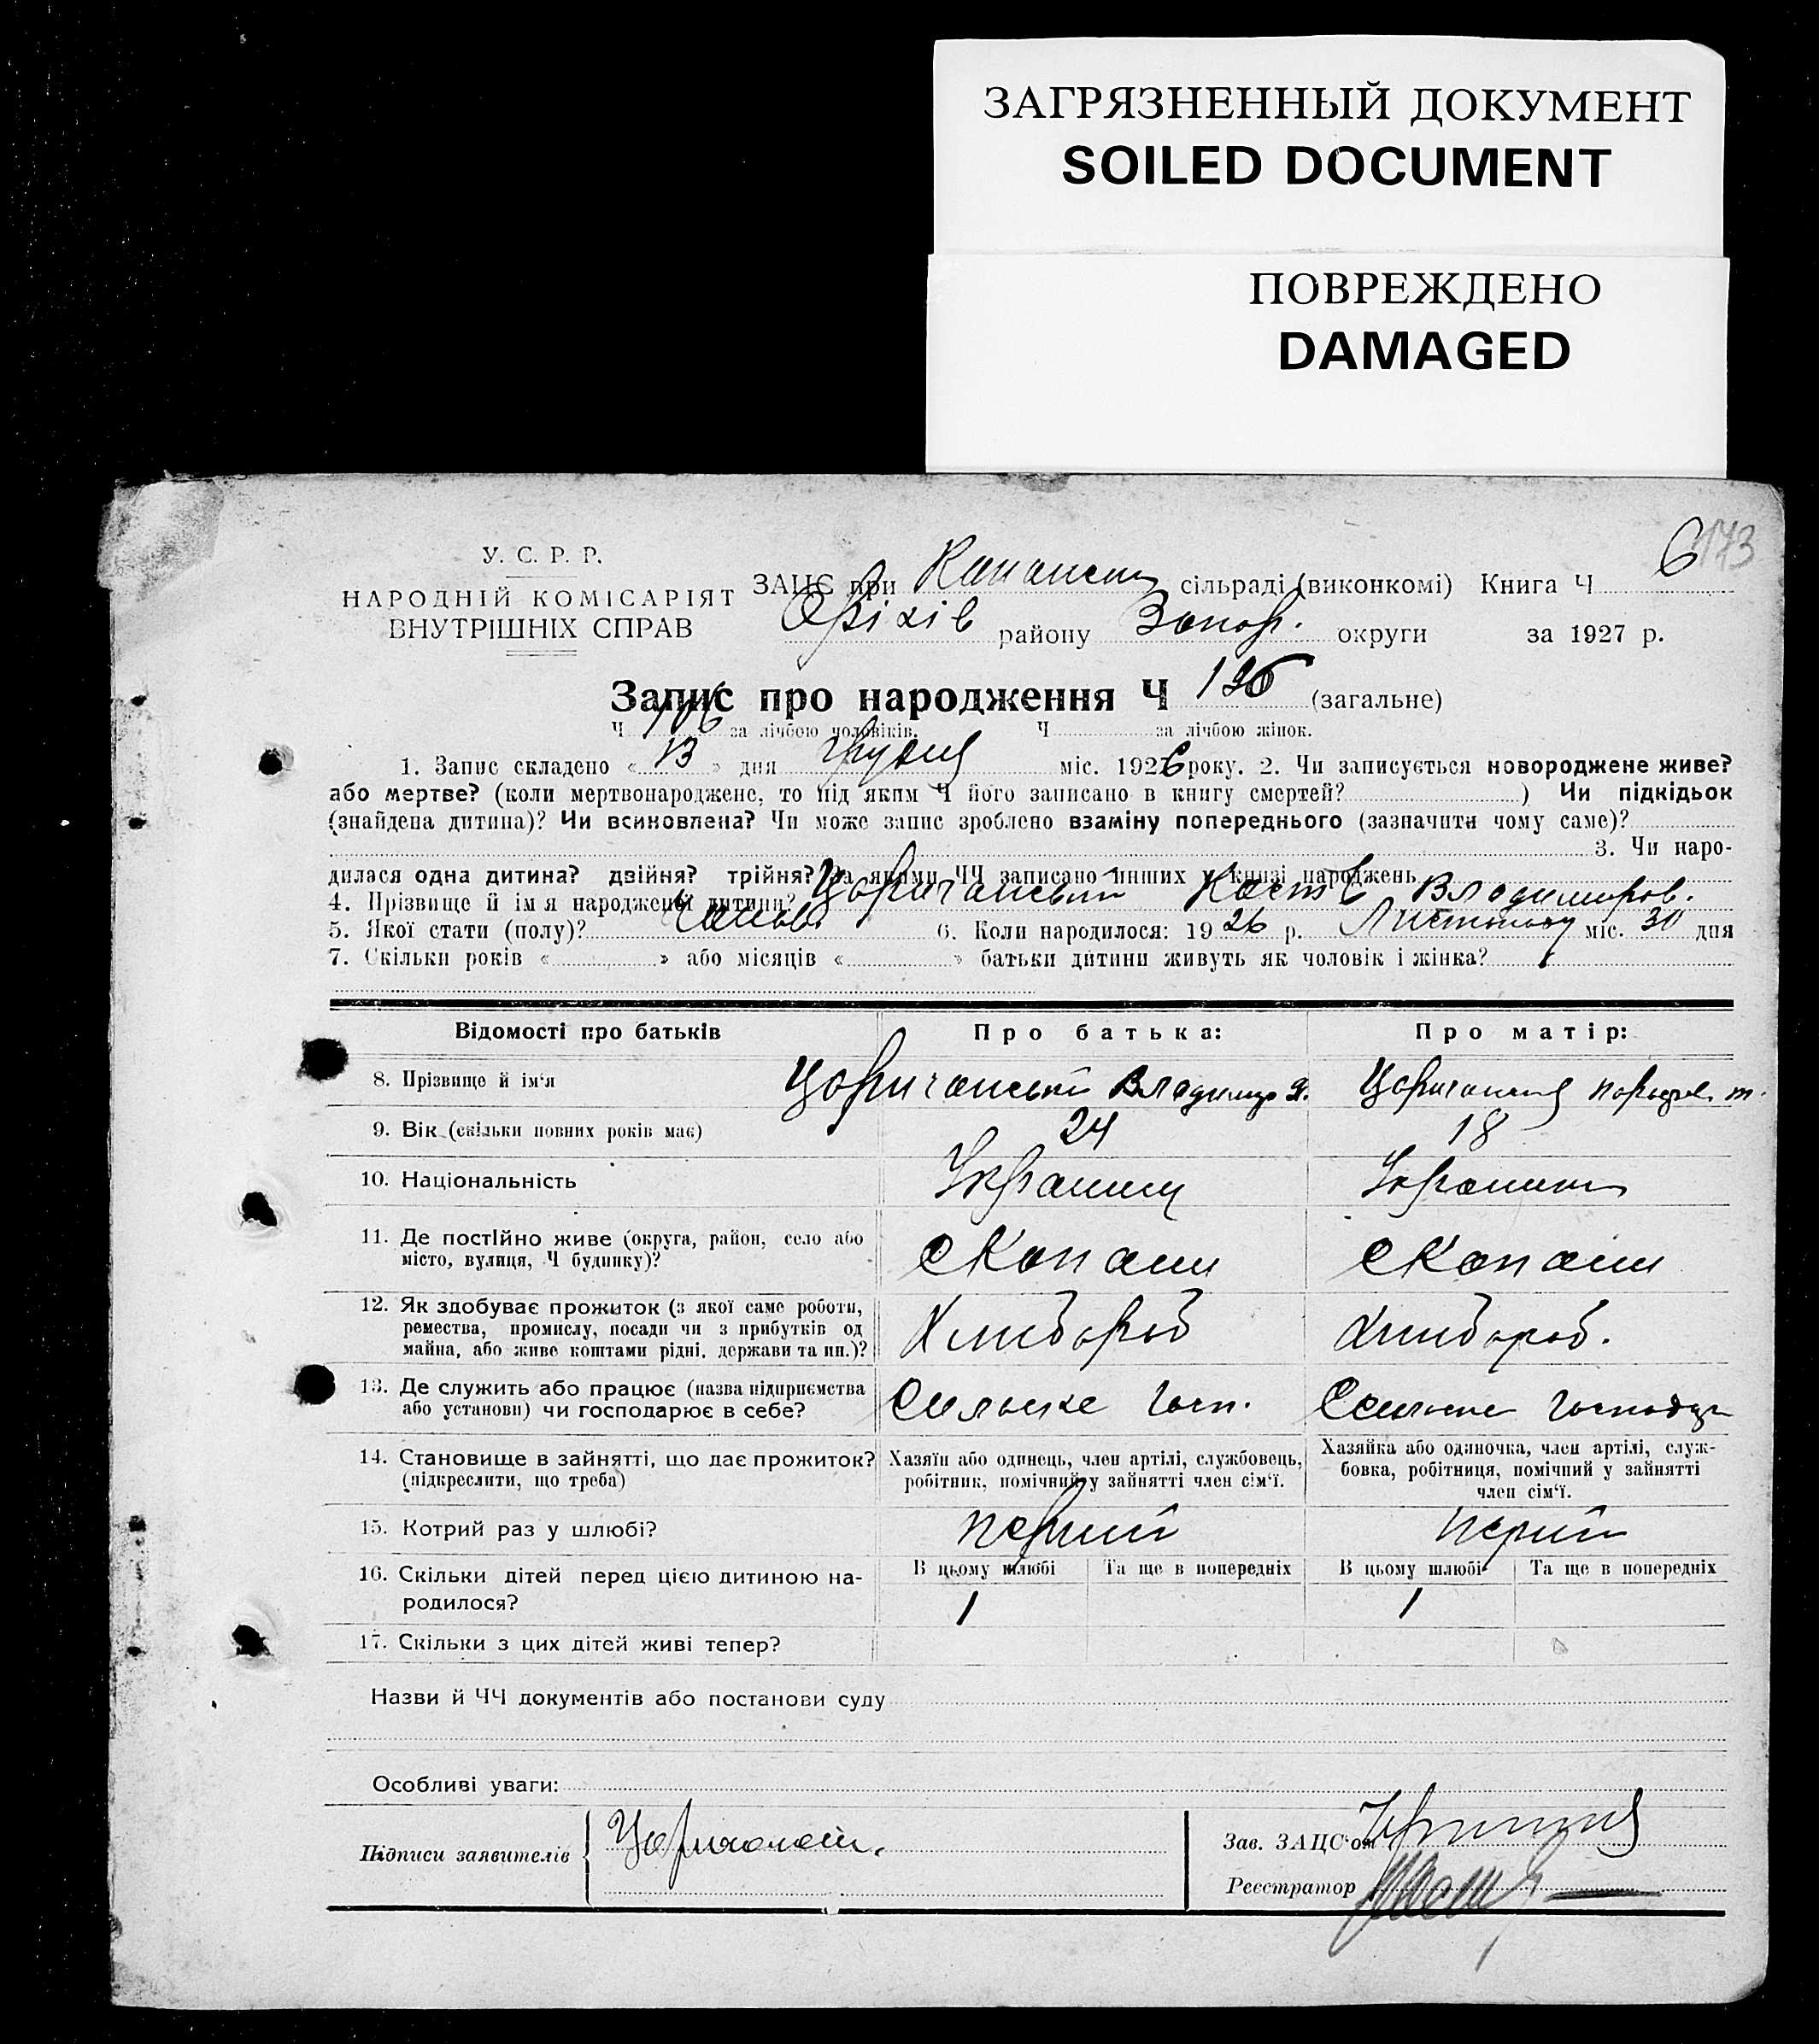 ЗАГРЯЗНЕННЫЙ ДОКУМЕНТ
SOILED DOCUMENT
ПОВРЕЖДЕНО
DAMAGED
6 173
У. С. Р. Р.
НАРОДНІЙ КОМІСАРІЯТ
ВНУТРІШНІХ СПРАВ
ЗАЦС при сільраді (виконкомі) Книга Ч
Оріхів району Запор. округи за 1927 р.
Запис про народження Ч (загальне)
Ч 106 за лічбою чоловіків. Ч за лічбою жінок.
1. Запис складено « 13 » дня грудня міс. 1926 року. 2. Чи записується новороджене живе?
або мертве? (коли мертвонароджене, то під яким Ч його записано в книгу смертей? ) Чи підкідьок
(знайдена дитина)? Чи всиновлена? Чи може запис зроблено взаміну попереднього (зазначити чому саме)?
3. Чи наро-
дилася одна дитина? двійня? трійня? За якими ЧЧ записано инших у книзі народжень
4. Прізвище й ім'я народженої дитини? Царичанский Кость Владимиров.
5. Якої стати (полу)? Чолов. 6. Коли народилося: 1926 р. Листопаду міс. 30 дня
7. Скільки років « » або місяців « » батьки дитини живуть як чоловік і жінка? 1
Відомості про батьків Про батька: Про матір:
8. Прізвище й ім'я Царичанський Владимир Я. Царичанська т.
9. Вік (скільки повних років має) 24 18
10. Національність Українец Українка
11. Де постійно живе (округа, район, село або
місто, вулиця, Ч будинку)? с Копани с Копани
12. Як здобуває прожиток (з якої саме роботи,
ремества, промислу, посади чи з прибутків од
майна, або живе коштами рідні, держави та ин.)? Хлибороб Хлибороб.
13. Де служить або працює (назва підприємства
або установи) чи господарює в себе? Сильске Госп. Сильске Господар
14. Становище в зайнятті, що дає прожиток?
(підкреслити, що треба)
Хазяїн або одинець, член артілі, службовець,
робітник, помічний у зайнятті член сім'ї.
Хазяйка або одиночка, член артілі, служ-
бовка, робітниця, помічний у зайнятті
член сім'ї.
15. Котрий раз у шлюбі? перший перший
16. Скільки дітей перед цією дитиною на-
родилося?
В цьому шлюбі Та ще в попередніх В цьому шлюбі Та ще в попередніх
1 1
17. Скільки з цих дітей живі тепер?
Назви й ЧЧ документів або постанови суду
Особливі уваги:
Підписи заявителів Зав. ЗАЦС'ом
Реєстратор